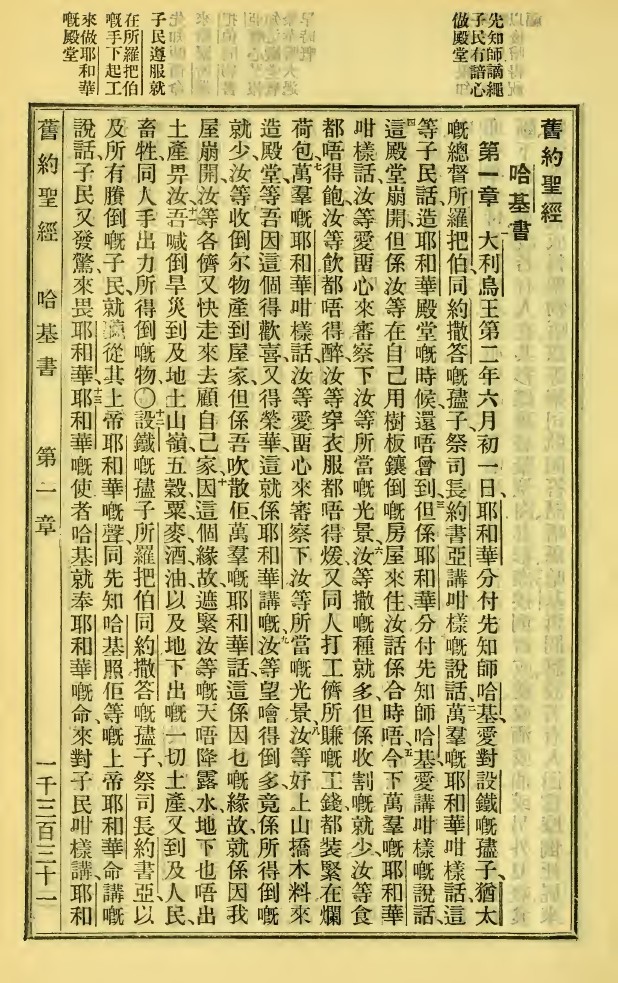 先知師謫繩
子民有諳心
做殿堂
子民遵服就
在所羅把伯
嘅手下起工
來做耶和華
嘅殿堂
舊約聖經
哈基書
第一章 一大利烏王第二年六月初一日、耶和華分付先知師哈基、愛對設鐵嘅孻子、猶太
嘅總督所羅把伯、同約撒答嘅孻子祭司長約書亞、講咁樣嘅說話、二萬羣嘅耶和華咁樣話、這
等子民話、造耶和華殿堂嘅時候、還唔曾到、三但係耶和華分付先知師哈基、愛講咁樣嘅說話、
四這殿堂崩開、但係汝等在自己用樹板鑲倒嘅房屋來住、汝話係合時唔、五今下萬羣嘅耶和華
咁樣話、汝等愛畱心來審察下汝等所當嘅光景、六汝等撒嘅種就多、但係收割嘅就少、汝等食
都唔得飽、汝等飲都唔得醉、汝等穿衣服都唔得煖、又同人打工儕所賺嘅工錢、都裝緊在爛
荷包、七萬羣嘅耶和華咁樣話、汝等愛畱心來審察下汝等所當嘅光景、八汝等好上山撟木料來
造殿堂等吾因這個得歡喜、又得榮華、這就係耶和華講嘅、九汝等望噲得倒多、竟係所得倒嘅
就少、汝等收倒尔物產到屋家、但係吾吹散佢、萬羣嘅耶和華話、這係因乜嘅緣故、就係因我
屋崩開、汝等各儕又快走來去顧自己家、十因這個緣故、遮緊汝等嘅天唔降露水、地下也唔出
土產畀汝、十一吾喊倒旱災到及地土、山嶺、五穀、粟麥、酒油、以及地下出嘅一切土產、又到及人民、
畜牲、同人手出力所得倒嘅物、〇十二設鐵嘅孻子所羅把伯、同約撒答嘅孻子祭司長約書亞、以
及所有賸倒嘅子民、就從其上帝耶和華嘅聲、同先知哈基照佢等嘅上帝耶和華命講嘅
說話、子民又發驚來畏耶和華、十三耶和華嘅使者哈基、就奉耶和華嘅命來對子民咁樣講、耶和
舊約聖經 哈基書 第一章 一千三百三十一